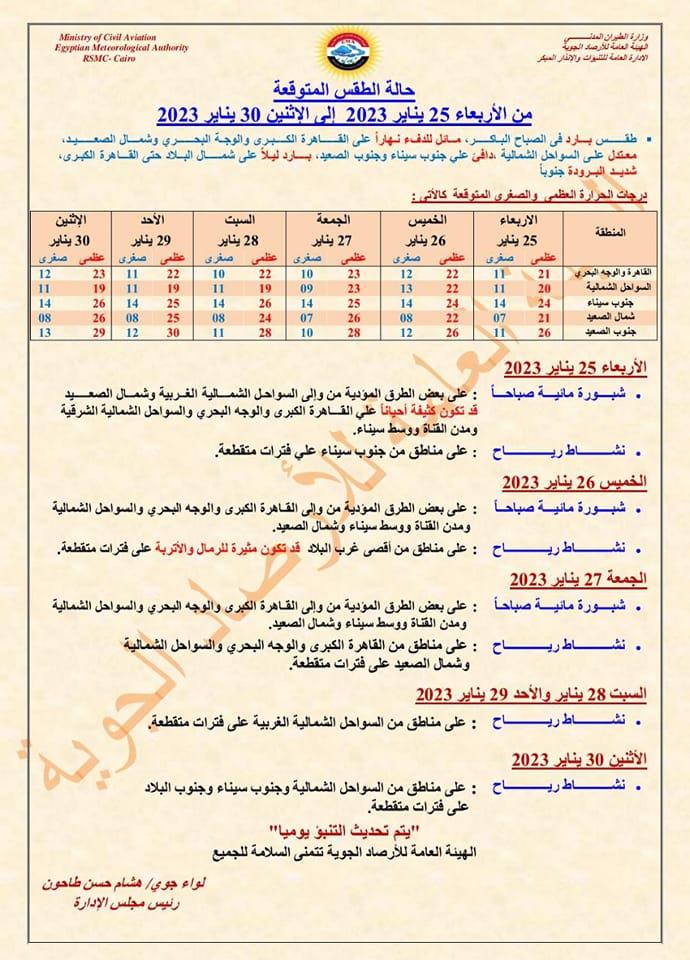 Ministry of Civil Aviation
Egyptian Meteorological Authority
RSMC- Cairo
وزارة الطيران المدنـــــــي
الهيئة العامة للأرصاد الجوية
الادارة العامة للتنبؤات والإنذار المبكر
حالة الطقس المتوقعة
من الأربعاء 25 يناير 2023 إلى الإثنين 30 يناير 2023
طقــس بــارد فى الصباح الباكــر، مـائل للدفء نـهاراً على القــاهرة الكـبرى والوجـة البحــري وشمال الصعــيد،
معـتدل على السواحل الشمالية ،دافئ علي جنوب سيناء وجنوب الصعيد، بــارد ليـلاً على شمــال البـلاد حتى القـاهرة الكبرى،
شديد البرودة جنوباً
درجات الحرارة العظمى والصغرى المتوقعة كالآتى :
المنطقة الاربعاء 25 يناير الخميس 26 يناير الجمعة 27 يناير السبت 28 يناير الأحد 29 يناير الإثنين 30 يناير
عظمى صغرى عظمى صغرى عظمى صغرى عظمى صغرى عظمى صغرى عظمى صغرى
القاهرة والوجه البحري 21 11 22 12 23 10 22 10 22 11 23 12
السواحل الشمالية 20 11 22 13 23 09 19 11 19 11 19 11
جنوب سيناء 24 14 24 14 25 14 26 14 25 14 26 14
شمال الصعيد 21 07 22 08 26 07 24 08 25 08 26 08
جنوب الصعيد 26 11 26 12 28 10 28 11 30 12 29 13
الأربعاء 25 يناير 2023
شبــورة مائيــة صباحـاً : على بعض الطرق المؤدية من وإلى السواحـل الشمـالية الغربية وشمال الصعــيد
قد تكون كثيفة أحياناً علي القـاهرة الكبرى والوجه البحري والسواحل الشمالية الشرقية
ومدن القناة ووسط سيناء.
نشــــاط ريــــــاح : على مناطق من جنوب سيناء علي فترات متقطعة.
الخميس 26 يناير 2023
شبــورة مائيــة صباحـاً : على بعض الطرق المؤدية من وإلى القـاهرة الكبرى والوجه البحري والسواحل الشمالية
ومدن القناة ووسط سيناء وشمال الصعيد.
نشــــاط ريــــــاح : على مناطق من أقصى غرب البلاد قد تكون مثيرة للرمال والأتربة على فترات متقطعة.
الجمعة 27 يناير 2023
شبــورة مائيــة صباحـاً : على بعض الطرق المؤدية من وإلى القـاهرة الكبرى والوجه البحري والسواحل الشمالية
ومدن القناة ووسط سيناء وشمال الصعيد.
نشــــاط ريــــــاح : على مناطق من القاهرة الكبرى والوجه البحري والسواحل الشمالية
وشمال الصعيد على فترات متقطعة.
السبت 28 يناير والأحد 29 يناير 2023
نشــــاط ريــــــاح : على مناطق من السواحل الشمالية الغربية على فترات متقطعة.
الأثنين 30 يناير 2023
نشــــاط ريــــــاح : على مناطق من السواحل الشمالية وجنوب سيناء وجنوب البلاد
على فترات متقطعة.
"يتم تحديث التنبؤ يوميا"
الهيئة العامة للأرصاد الجوية تتمنى السلامة للجميع
لواء جوي/ هشام حسن طاحون
رئيس مجلس الإدارة
الهيئة العامة للأرصاد الجوية